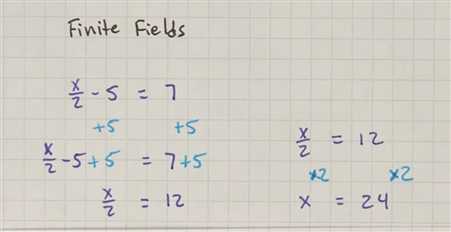 Finite Fields
x/2 - 5 = 7
+5 +5
x/2 - 5 + 5 = 7 + 5
x/2 = 12
x/2 = 12
x2 x2
x = 24